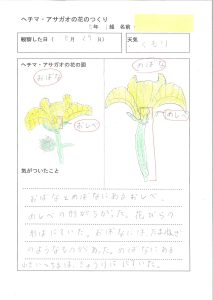 ヘチマ・アサガオの花のつくり
年 組 名前
観察した日( 月 日) 天気
くもり
ヘチマ・アサガオの花の図
おばな
めばな
おしべ
めしべ
気がついたこと
おばなとめばなにわかおしべ、
めしべの形がちがった。花びらの
形はにていた。おばなには
のようなものがあった。めばなにある
小さいへちまは、きゅうりににていた。